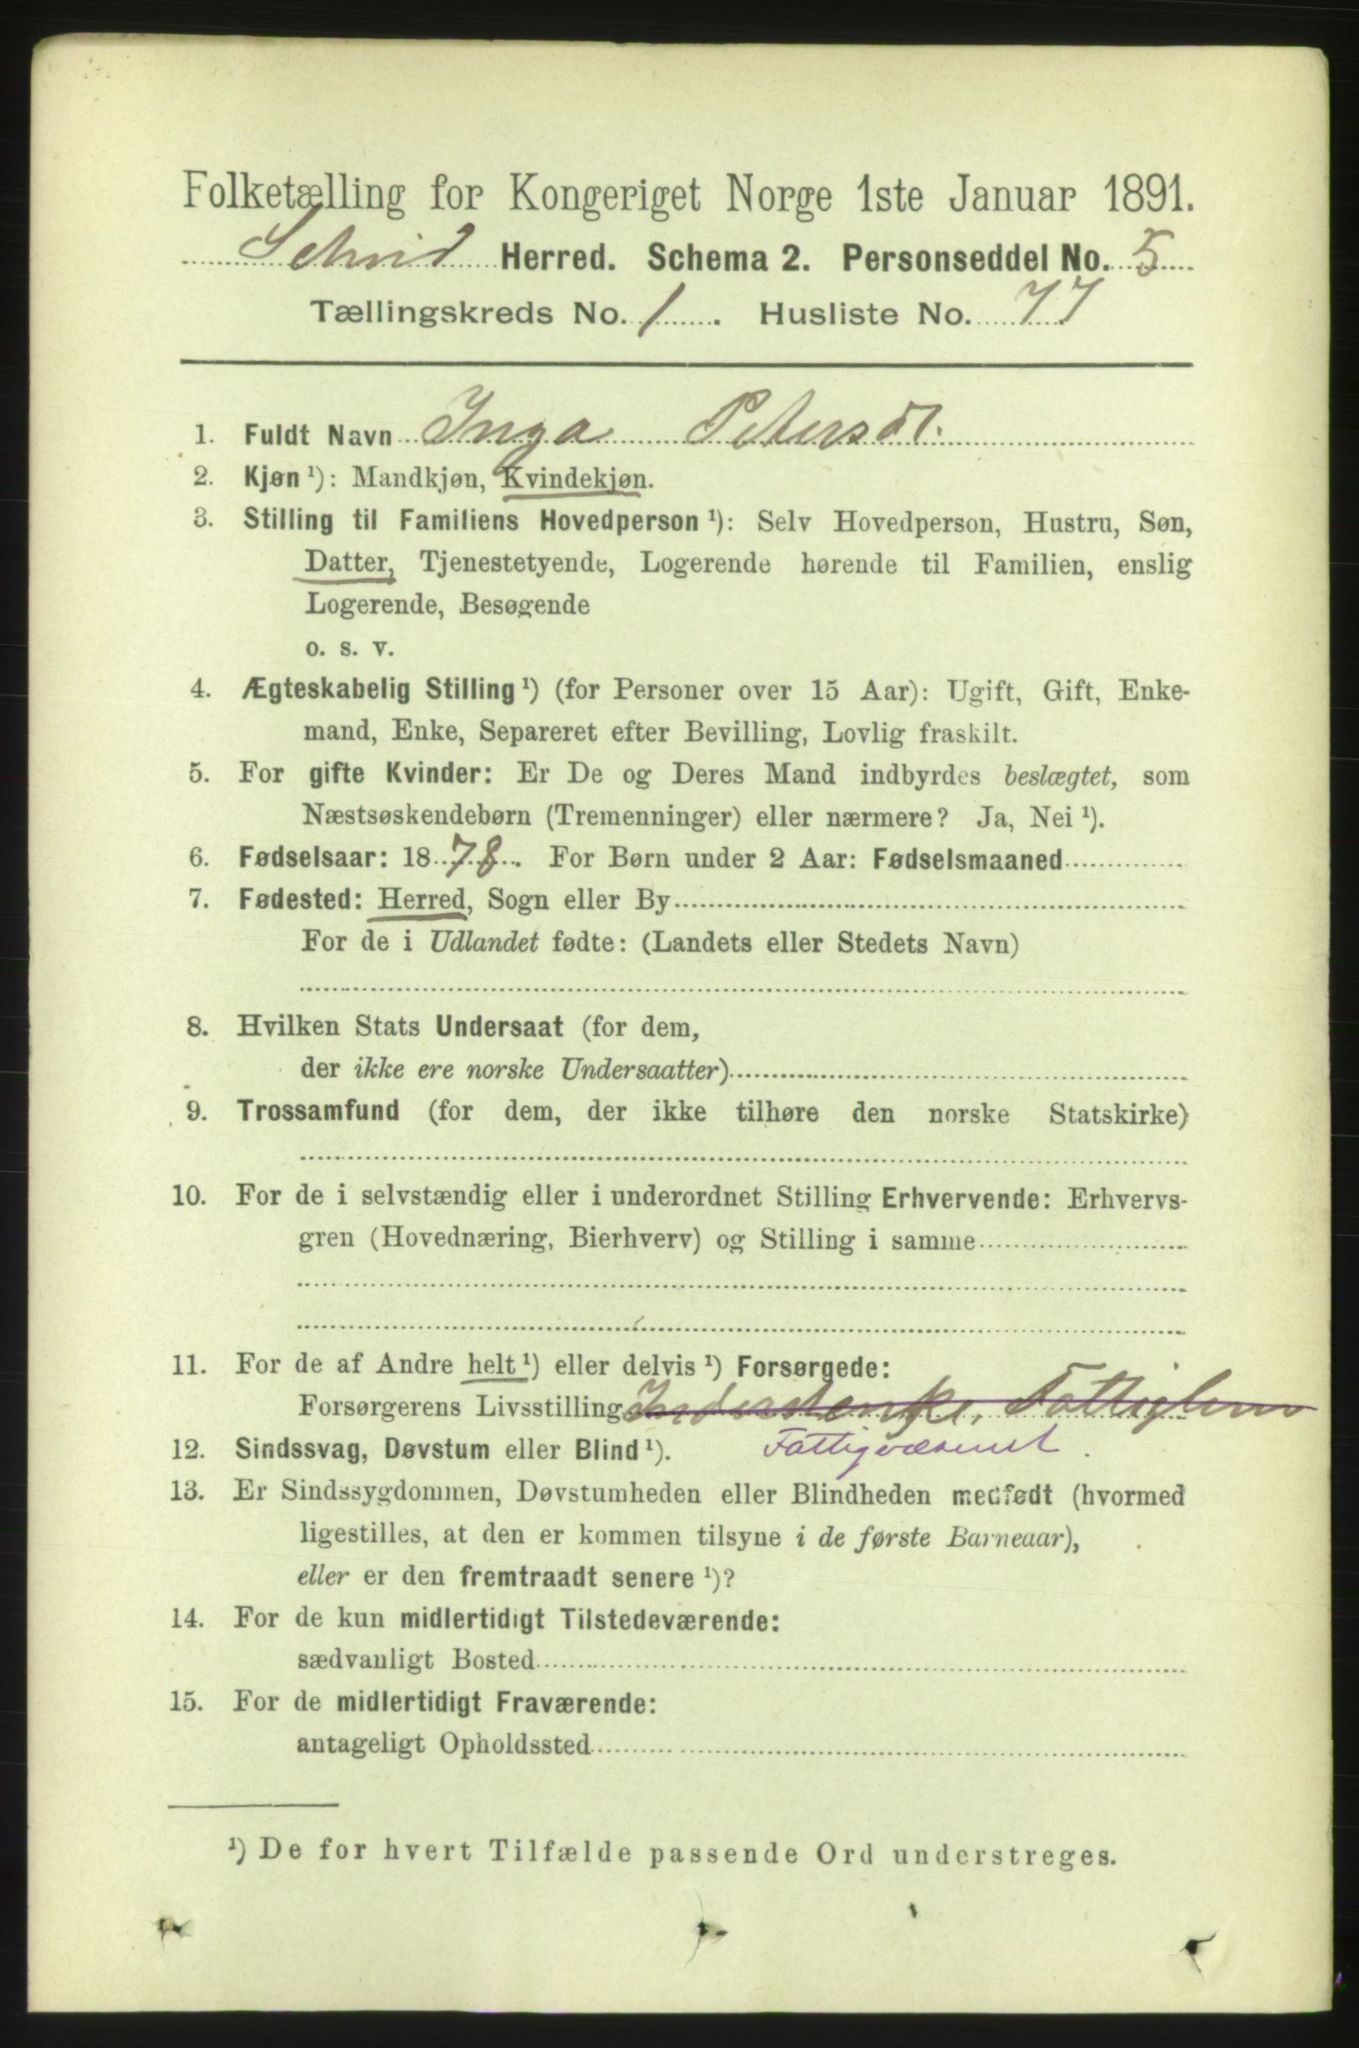 Folketælling for Kongeriget Norge 1ste Januar 1891.
Herred. Schema 2. Personseddel No. 5
Tællingskreds No. 1. Husliste No. 77
1. Fuldt Navn Inga Petersdt.
2. Kjøn ¹): Mandkjøn, Kvindekjøn.
3. Stilling til Familiens Hovedperson ¹): Selv Hovedperson, Hustru, Søn,
Datter, Tjenestetyende, Logerende hørende til Familien, enslig
Logerende, Besøgende
o. s. v.
4. Ægteskabelig Stilling ¹) (for Personer over 15 Aar): Ugift, Gift, Enke-
mand, Enke, Separeret efter Bevilling, Lovlig fraskilt.
5. For gifte Kvinder: Er De og Deres Mand indbyrdes beslægtet, som
Næstsøskendebørn (Tremenninger) eller nærmere? Ja, Nei ¹).
6. Fødselsaar: 1878. For Børn under 2 Aar: Fødselsmaaned
7. Fødested: Herred, Sogn eller By
For de i Udlandet fødte: (Landets eller Stedets Navn)
8. Hvilken Stats Undersaat (for dem,
der ikke ere norske Undersaatter)
9. Trossamfund (for dem, der ikke tilhøre den norske Statskirke)
10. For de i selvstændig eller i underordnet Stilling Erhvervende: Erhvervs-
gren (Hovednæring, Bierhverv) og Stilling i samme
11. For de af Andre helt ¹) eller delvis ¹) Forsørgede:
Forsørgerens Livsstilling Inderstenke, Fattiglem
12. Sindssvag, Døvstum eller Blind ¹). Fattigvæsenet.
13. Er Sindssygdommen, Døvstumheden eller Blindheden medfødt (hvormed
ligestilles, at den er kommen tilsyne i de første Barneaar),
eller er den fremtraadt senere ¹)?
14. For de kun midlertidigt Tilstedeværende:
sædvanligt Bosted
15. For de midlertidigt Fraværende:
antageligt Opholdssted
¹) De for hvert Tilfælde passende Ord understreges.